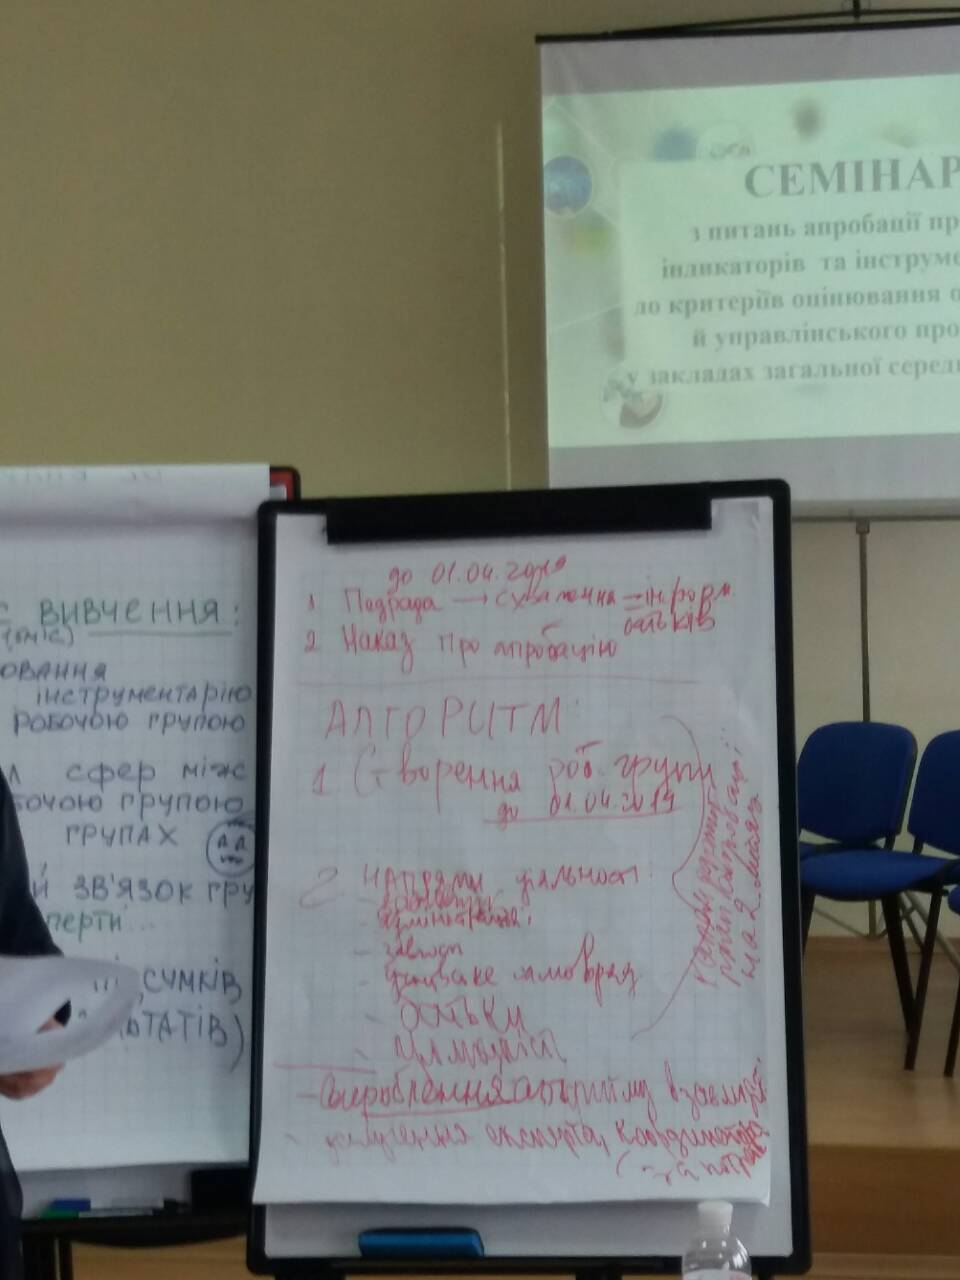 СЕМІНАР
з питань апробації пр
індикаторів та інструме
до критеріїв оцінювання о
й управлінського про
у закладах загальної серед
ВИВЧЕННЯ:
ОВАННЯ
ІНСТРУМЕНТАРІЮ
РОБОЧОЮ ГРУПОЮ
Л СФЕР МІЖ
БОЧОЮ ГРУПОЮ
ГРУПАХ
Й ЗВ'ЯЗОК ГРУ
СПЕРТИ...
СУМКІВ
ЬТАТІВ)
до 01.04.2019
1 Педрада → схвалення → інформ.
батьків
2 Наказ про апробацію
АЛГОРИТМ:
1 Створення роб. групи
до 01.04.2019
2 Напрями діяльності:
- адміністрація
- завгосп
- учнівське самовряд
- батьки
- вироблення алгоритму взаємодії
- залучення експерта, координатора
(за потреби)
на 2 місяці